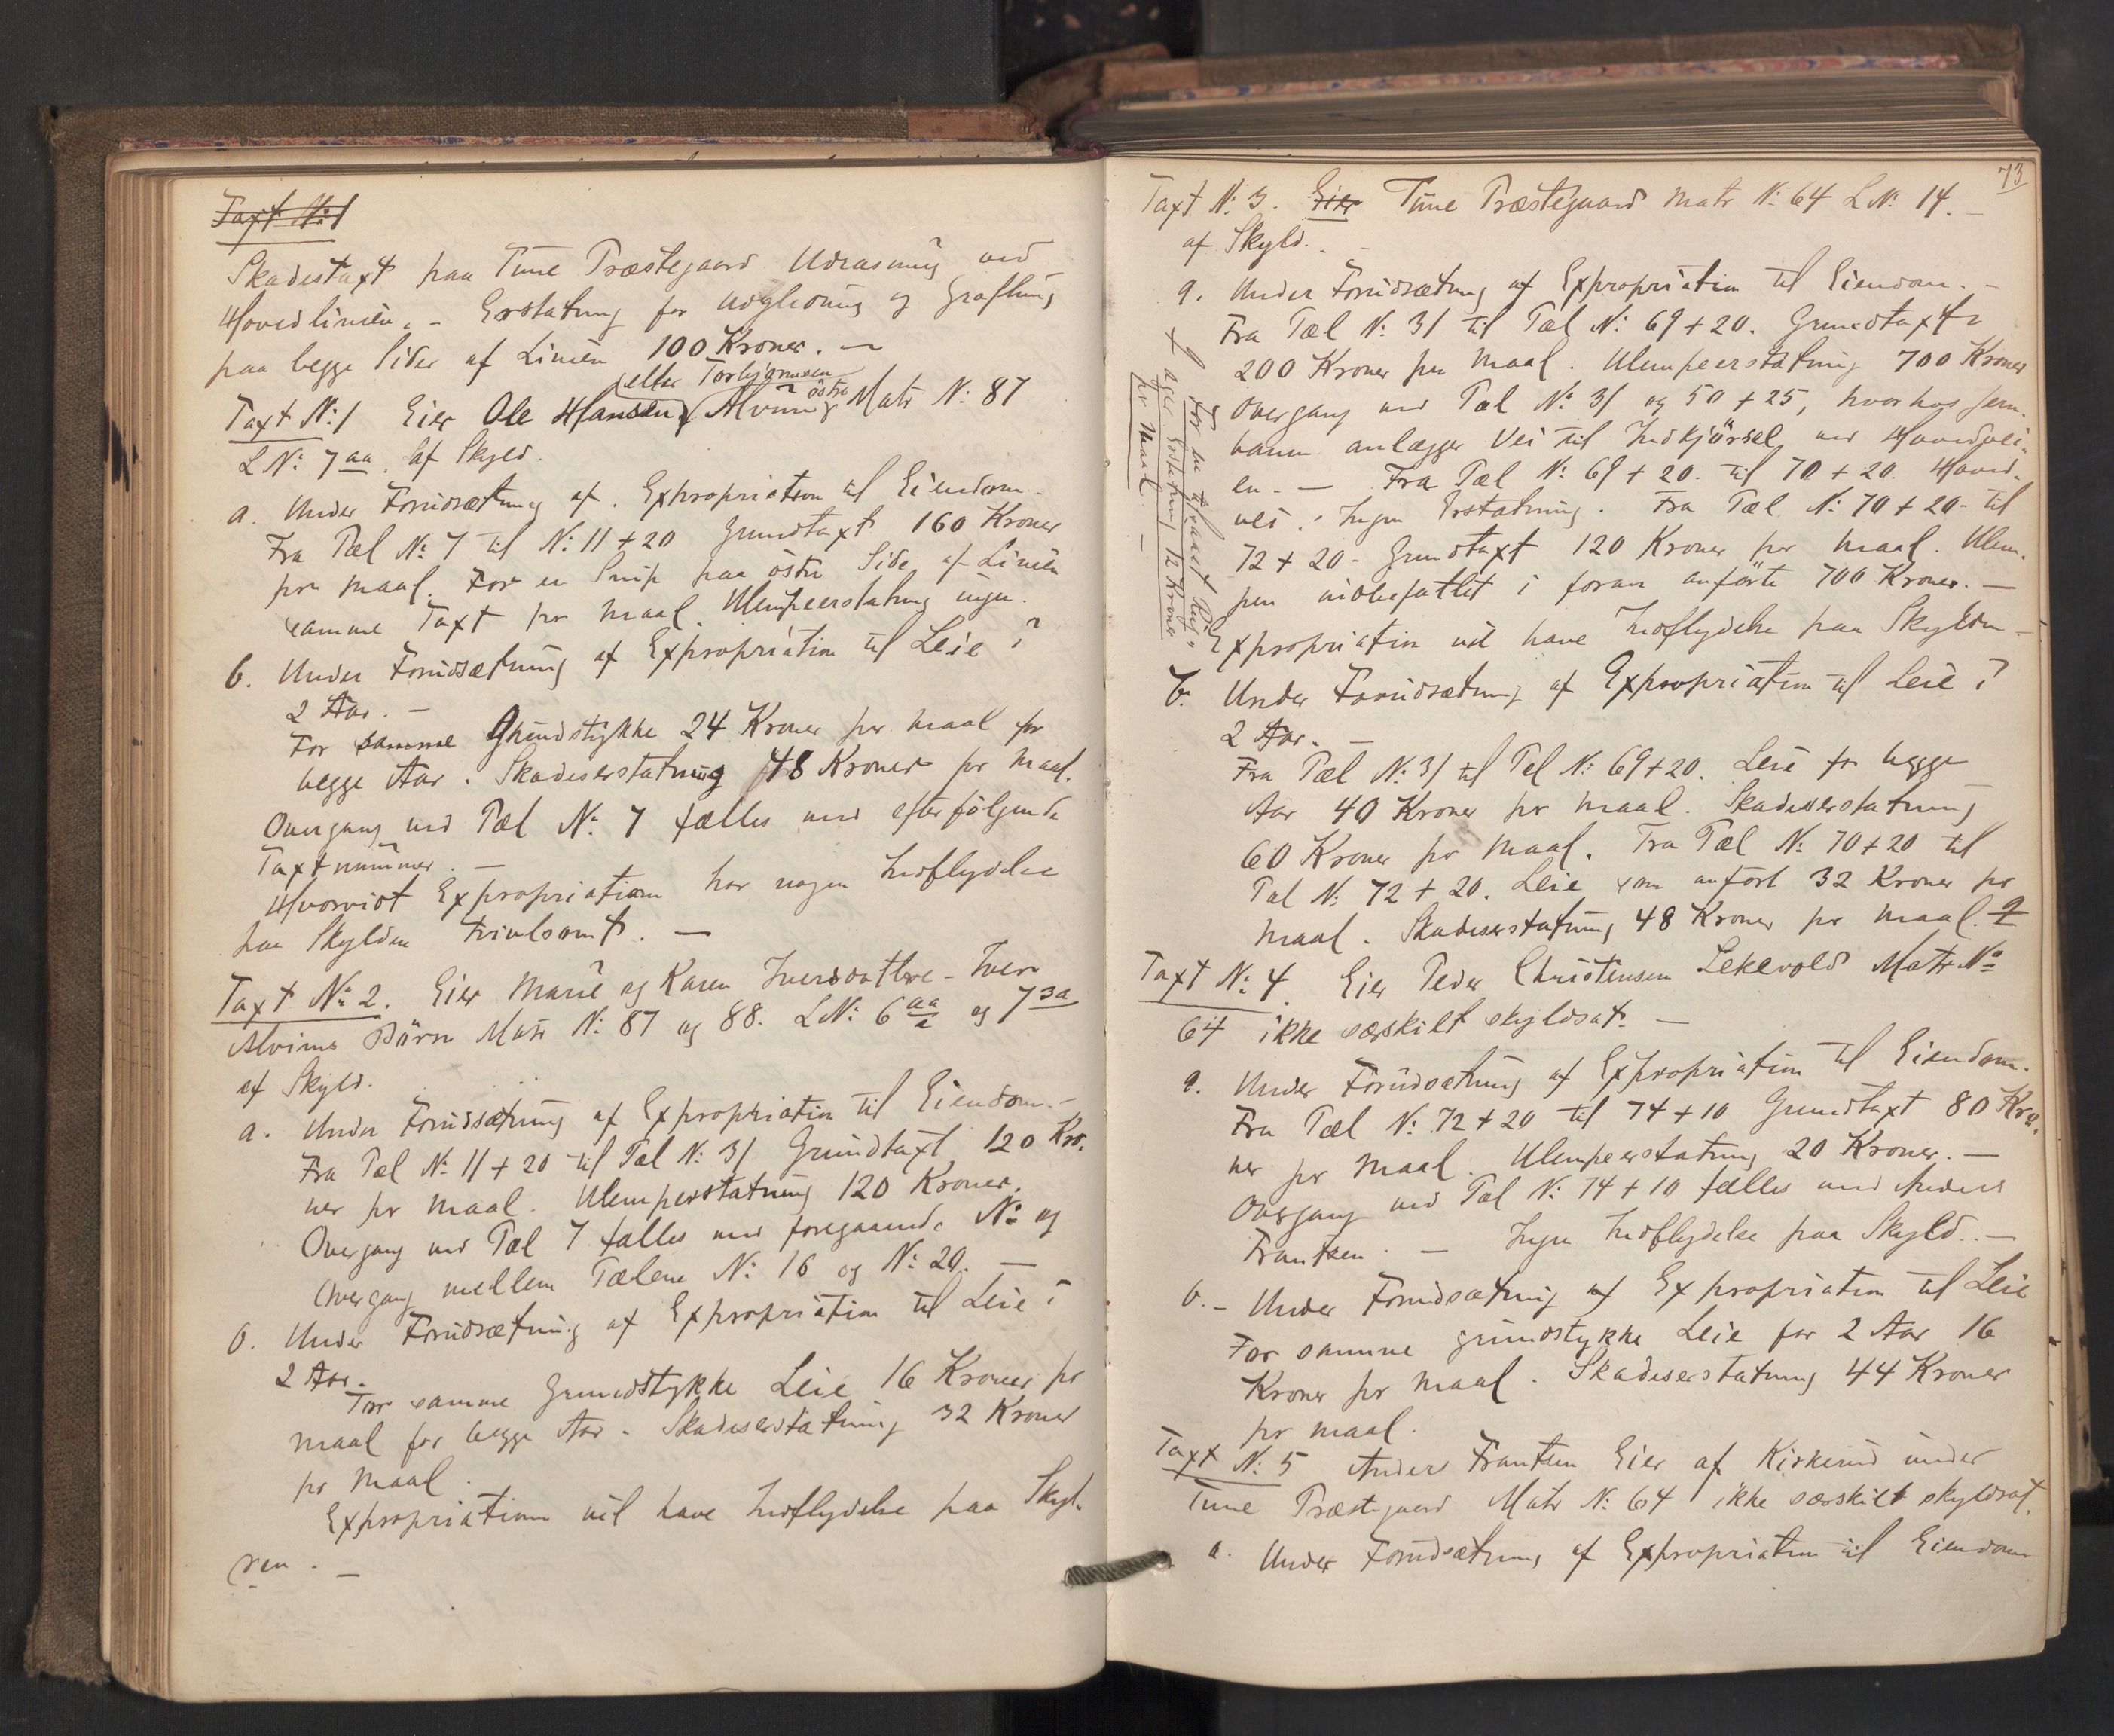 Taxt N: 1
Skadestaxt paa Tune Præstegaard Udrasning ved
Hovedlinien. - Erstatning for Udglidning og Grøftning
paa begge Sider af Linien 100 Kroner. —
eller Torbjørnsen
Taxt N: 1 Eier Ole Hansen, Alvim østre Matr N: 87
L N: 7 aa. af Skyld.
a. Under Forudsætning af Expropriation til Eiendom.
Fra Pæl N: 7 til N: 11 + 20 Grundtaxt 160 Kroner
pr Maal. For en Snip paa østre Side af Linien
samme Taxt pr Maal. Ulempeerstatning ingen.
b. Under Forudsætning af Expropriation til Leie i
2 Aar. —
For samme Grundstykke 24 Kroner pr Maal for
begge Aar. Skadeserstatning 48 Kroner pr Maal.
Overgang ved Pæl N: 7 fælles med efterfølgende
Taxtnummer. —
Hvorvidt Expropriationen har nogen Indflydelse
paa Skylden tvivlsomt. —
Taxt N: 2. Eier Marie og Karen Iversdøttre - Iver
Alvims Børn Matr N: 87 og 88. L N: 6 aa/a og 7 3a
af Skyld.
a. Under Forudsætning af Expropriation til Eiendom. -
Fra Pæl N: 11 + 20 til Pæl N: 31 Grundtaxt 120 Kro-
ner pr Maal. Ulemperstatning 120 Kroner.
Overgang ved Pæl 7 fælles med foregaaende N: og
Overgang mellem Pælene N: 16 og N: 20. —
b. Under Forudsætning af Expropriation til Leie i
2 Aar.
For samme Grundstykke Leie 16 Kroner pr
Maal for begge Aar. Skadeserstatning 32 Kroner
pr Maal.
Expropriationen vil have Indflydelse paa Skyl-
den. —
73
Taxt N: 3. Eier Tune Præstegaard Matr N: 64 L N: 14. -
af Skyld. -
a. Under Forudsætning af Expropriation til Eiendom. -
Fra Pæl N: 31 til Pæl N: 69 + 20. Grundtaxt
200 Kroner pr Maal. Ulempeerstatning 700 Kroner
Overgang ved Pæl N: 31 og 50 + 25, hvorhos Jern-
banen anlægger Vei til Indkjørsel ved Hovedvei-
en. — Fra Pæl N: 69 + 20 til 70 + 20 Hoved-
vei. Ingen Erstatning. Fra Pæl N: 70 + 20 til
72 + 20 - Grundtaxt 120 Kroner pr Maal. Ulem-
pen indbefattet i foran anførte 700 Kroner. —
Expropriation vil have Indflydelse paa Skylden -
b. Under Forudsætning af Expropriation til Leie i
2 Aar. —
Fra Pæl N: 31 til Pel N: 69 + 20. Leie for begge
Aar 40 Kroner pr Maal. Skadeserstatning
60 Kroner pr Maal. Fra Pæl N: 70 + 20 til
Pæl N: 72 + 20. Leie som anført 32 Kroner pr
Maal. Skadeserstatning 48 Kroner pr Maal.
For en tilsaaet
ager Erstatning 12 Kroner
pr Maal. —
Taxt N: 4. Eier Peder Christensen Lekevold Matr No
64 ikke særskilt skyldsat. —
a. Under Forudsætning af Expropriation til Eiendom.
Fra Pæl N: 72 + 20 til 74 + 10 Grundtaxt 80 Kro-
ner pr Maal. Ulempeerstatning 20 Kroner. —
Overgang ved Pæl N: 74 + 10 fælles med Anders
Frantsen. — Ingen Indflydelse paa Skyld. —
b. - Under Forudsætning af Expropriation til Leie
For samme Grundstykke Leie for 2 Aar 16
Kroner pr Maal. Skadeserstatning 44 Kroner
pr Maal.
Taxt N: 5 Anders Frantsen Eier af Kirkerud under
Tune Præstegaard Matr N: 64 ikke særskilt skyldsat.
a. Under Forudsætning af Expropriation til Eiendom